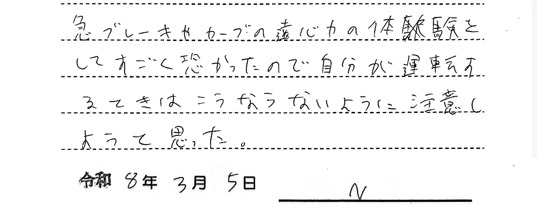 急ブレーキやカーブの遠心力の体験を
してすごく恐かったので自分が運転す
るときはこうならないように注意し
ようと思った。
令和 8年 3月 5日
N